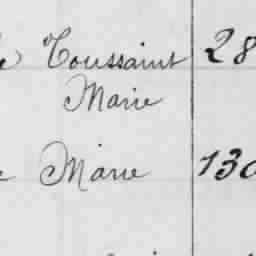 Toussaint 28
Marie
Marie 130